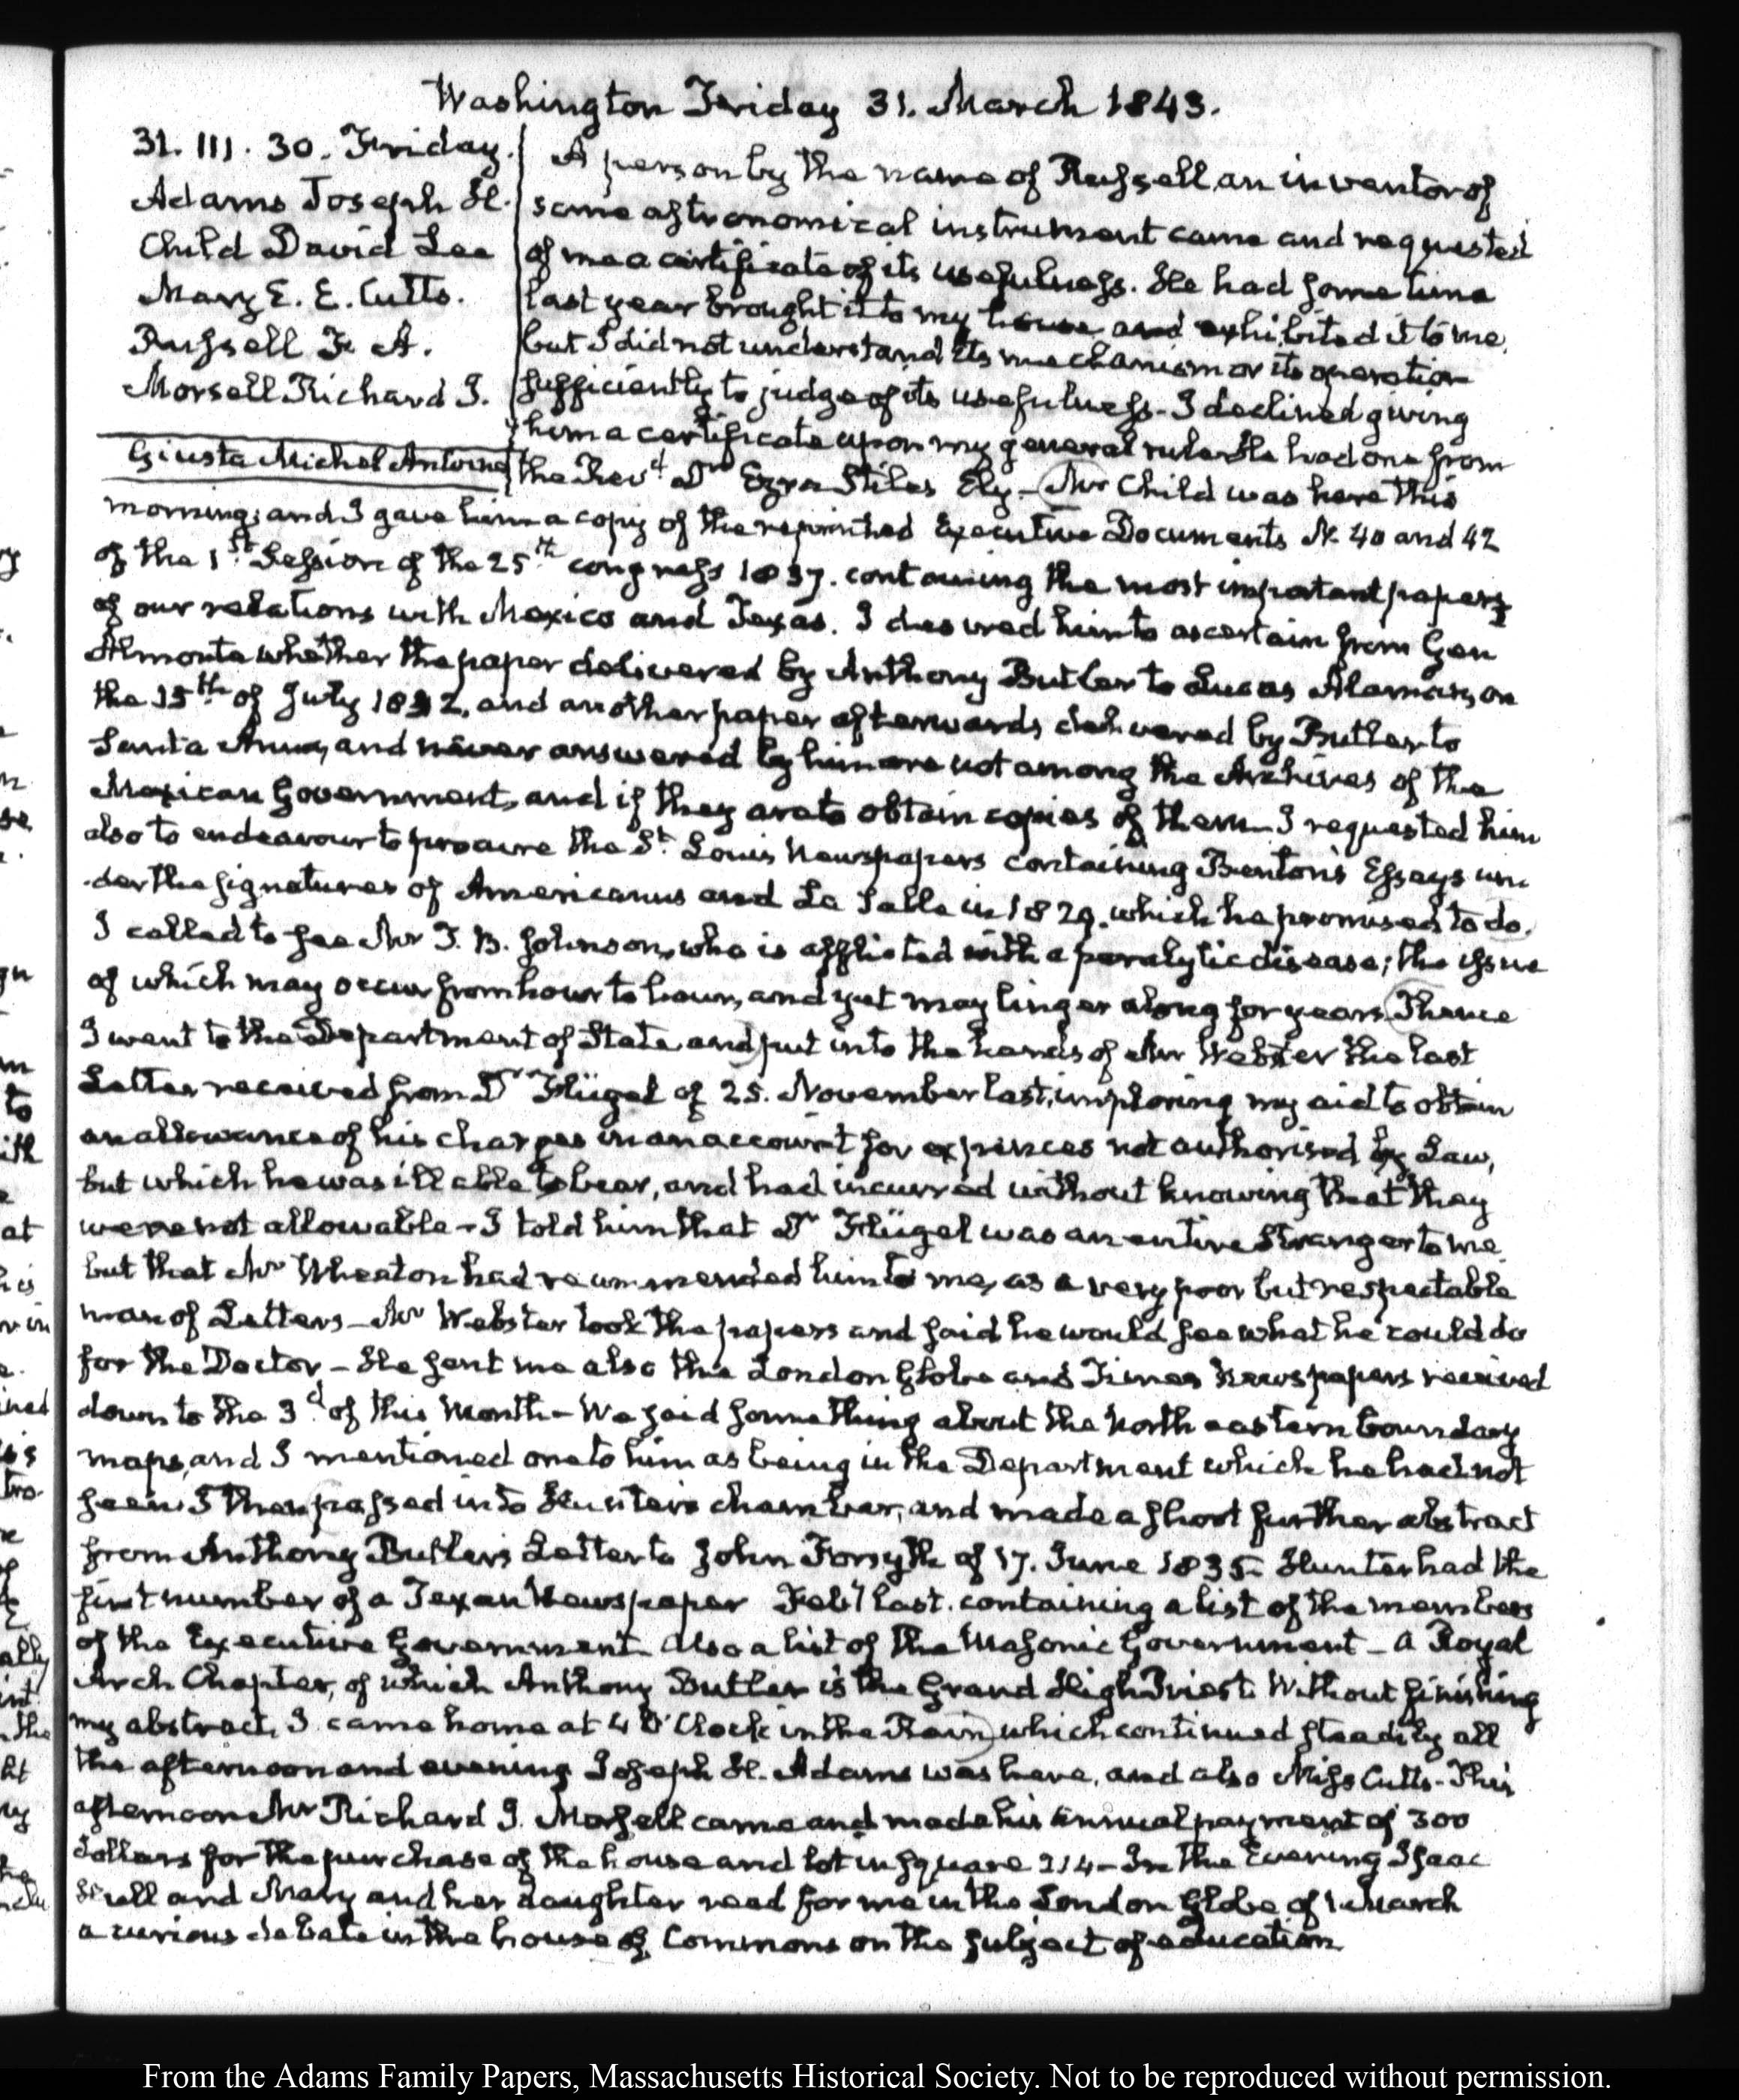 Washington Friday 31. March 1843.
31. III. 30. Friday.
Adams Joseph H.
Child David Lee
Mary E. E. Cutts.
Russell F. A.
Morsell Richard J.
Giusta Michel Antoine
A person by the name of Russell an inventor of
some astronomical instrument came and requested
of me a certificate of its usefulness. He had some time
last year brought it to my house and exhibited it to me,
but I did not understand its mechanism or its operation
sufficiently to judge of its usefulness - I declined giving
him a certificate upon my general rule. He had one from
the Revd. Dr Ezra Stiles Ely - Mr Child was here this
morning; and I gave him a copy of the reprinted Executive Documents N. 40 and 42
of the 1st. Session of the 25th congress 1837. containing the most important papers
of our relations with Mexico and Texas. I desired him to ascertain from Gen
Almonte whether the paper delivered by Anthony Butler to Lucas Alaman, on
the 15th. of July 1832, and another paper afterwards delivered by Butler to
Santa Anna, and never answered by him are not among the Archives of the
Mexican Government, and if they are to obtain copies of them - I requested him
also to endeavour to procure the St. Louis Newspapers containing Benton's Essays un
-der the signatures of Americanus and La Salle in 1829. which he promised to do.
I called to see Mr J. B. Johnson, who is afflicted with a paralytic disease; the issue
of which may occur from hour to hour, and yet may linger along for years. Thence
I went to the Department of State and put into the hands of Mr Webster the last
Letter received from Dr Flügel of 25. November last, imploring my aid to obtain
an allowance of his charges in an account for expences not authorised by Law,
but which he was ill able to bear, and had incurred without knowing that they
were not allowable - I told him that Dr Flügel was an entire Stranger to me,
but that Mr Wheaton had recommended him to me, as a very poor but respectable
man of Letters - Mr Webster took the papers and said he would see what he could do
for the Doctor - He sent me also the London Globe and Times Newspapers received
down to the 3d. of this Month - We said something about the North eastern boundary
maps, and I mentioned one to him as being in the Department which he had not
seen. I then passed into Hunter's chamber, and made a short further abstract
from Anthony Butler's Letter to John Forsyth of 17. June 1835 - Hunter had the
first number of a Texan Newspaper Feby last. containing a list of the members
of the Executive Government - also a list of the Masonic Government - a Royal
Arch Chapter, of which Anthony Butler is the Grand High Priest. Without finishing
my abstract, I came home at 4 O'Clock in the Rain, which continued steadily all
the afternoon and evening Joseph H. Adams was here, and also Miss Cutts - This
afternoon Mr Richard J. Morsell came and made his annual payment of 300
dollars for the purchase of the house and lot in square 214 - In the Evening Isaac
Hull and Mary and her daughter read for me in the London Globe of 1 March
a curious debate in the house of Commons on the subject of education
From the Adams Family Papers, Massachusetts Historical Society. Not to be reproduced without permission.